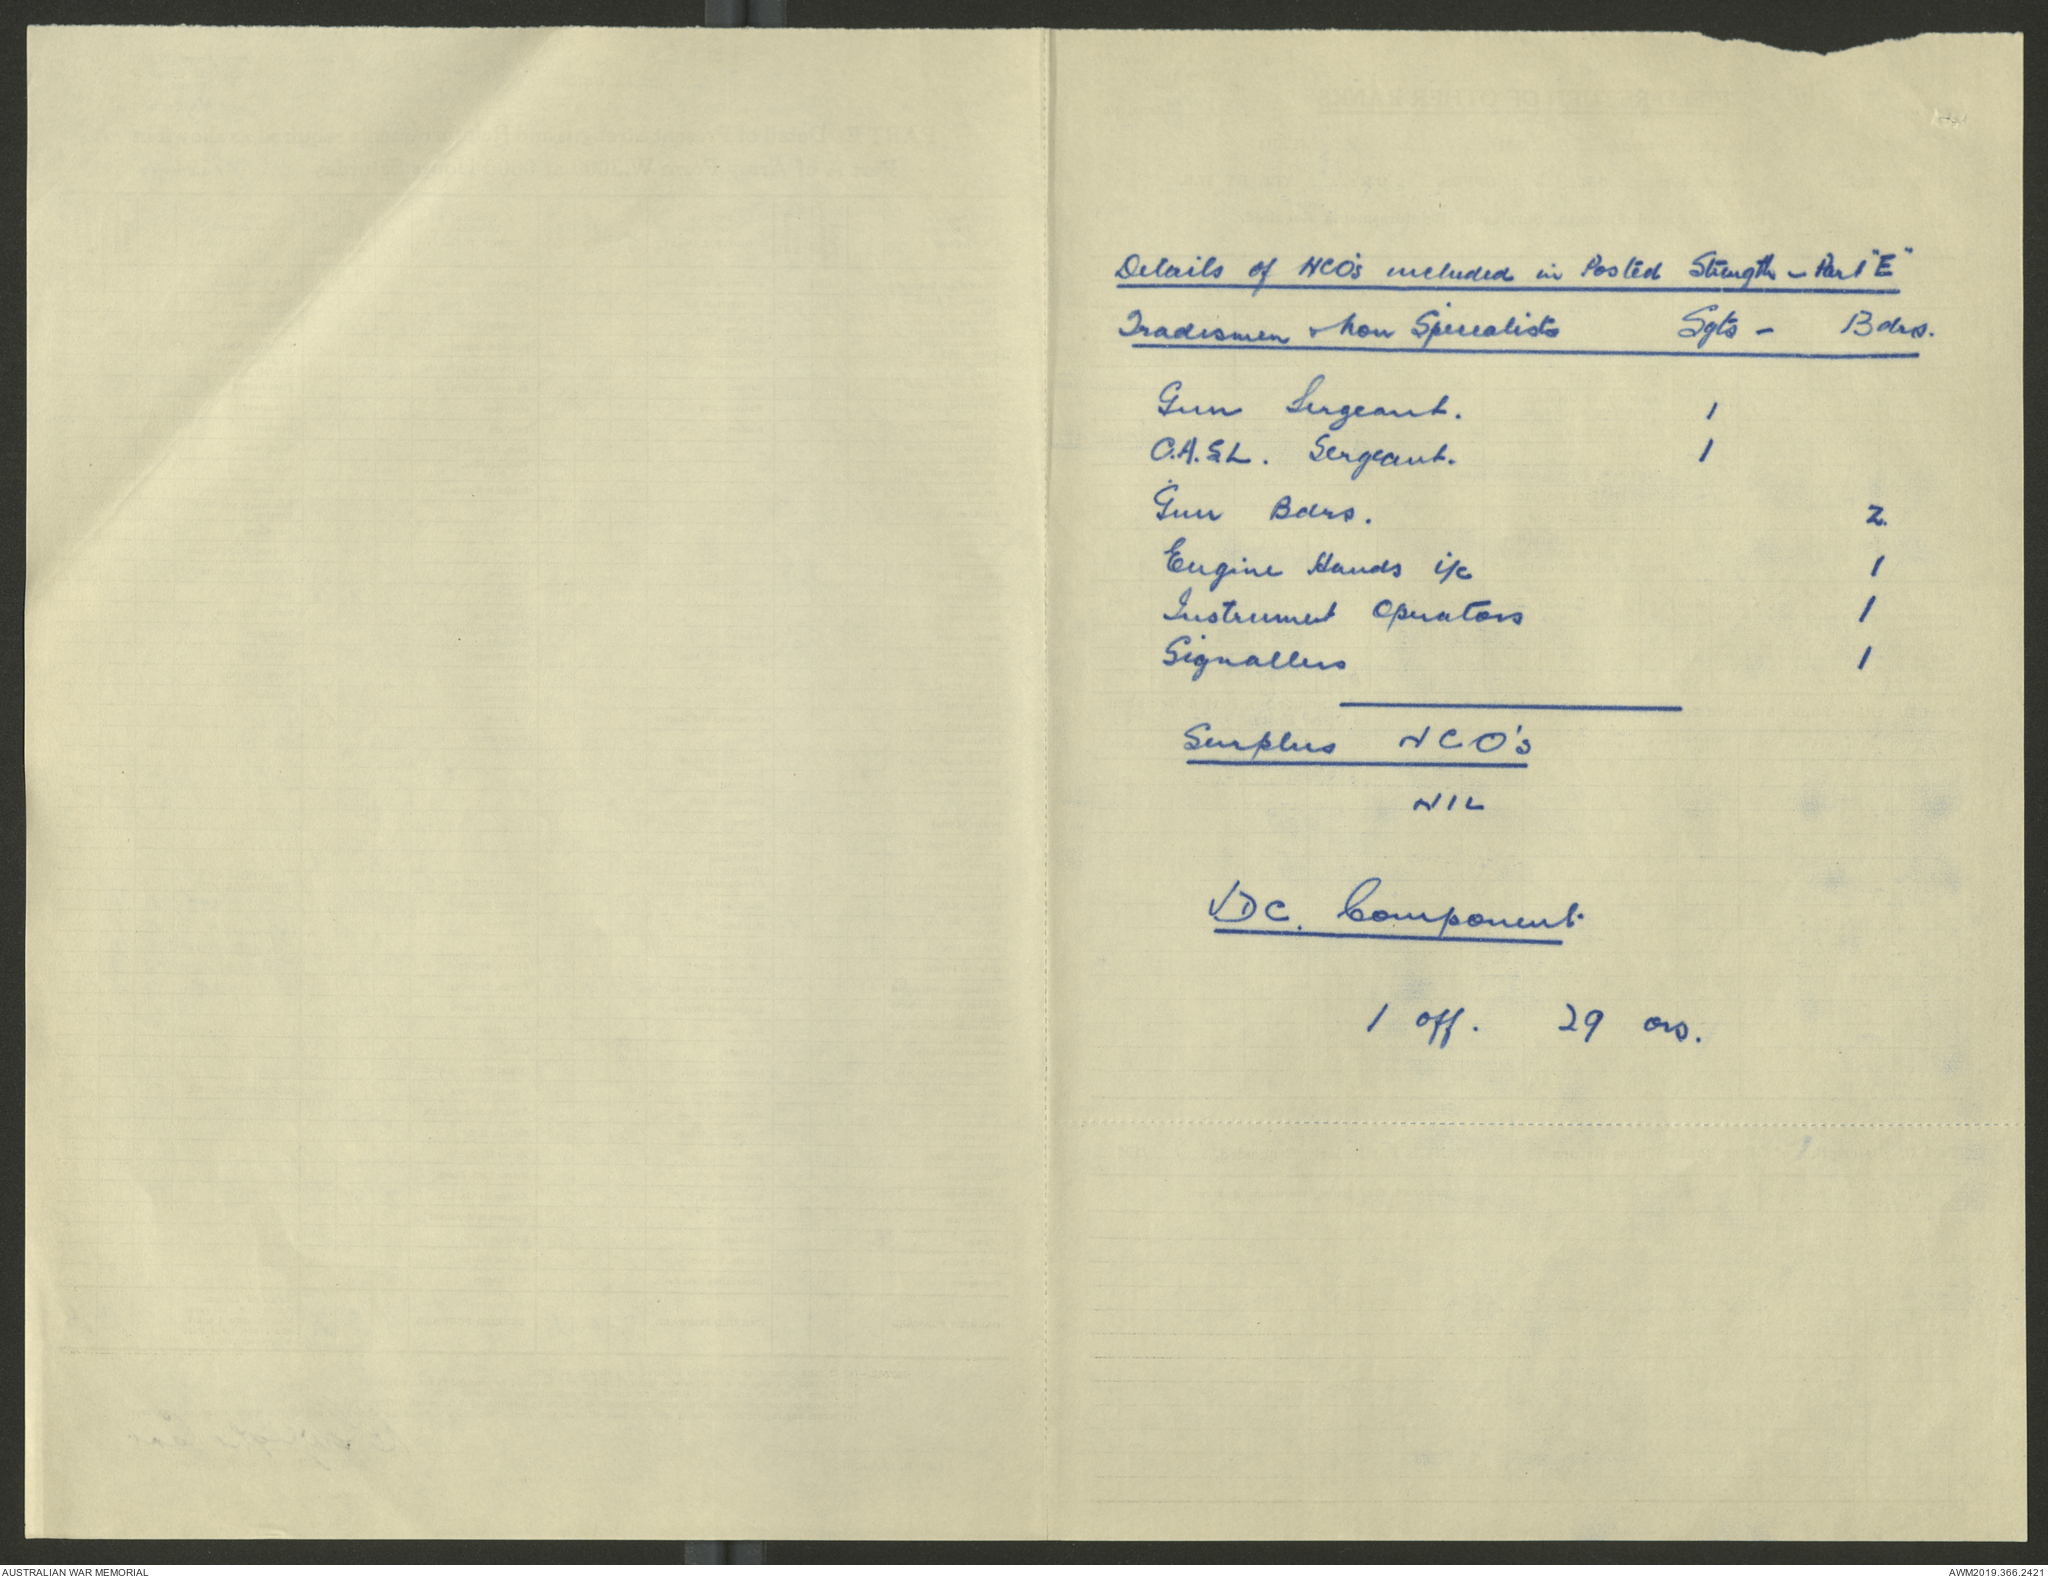 Details of NCO's included in Posted Strength - Part "E"
Tradesmen & Non Specialists Sgts - Bdrs.
Gun Sergeant. 1
C.A.S.L. Sergeant. 1
Gun Bdrs. 2.
Engine Hands i/c 1
Instrument Operators 1
Signallers 1
Surplus NCO's
NIL
VDC. Component
1 off. 29 ors.
AUSTRALIAN WAR MEMORIAL
AWM2019.366.2421